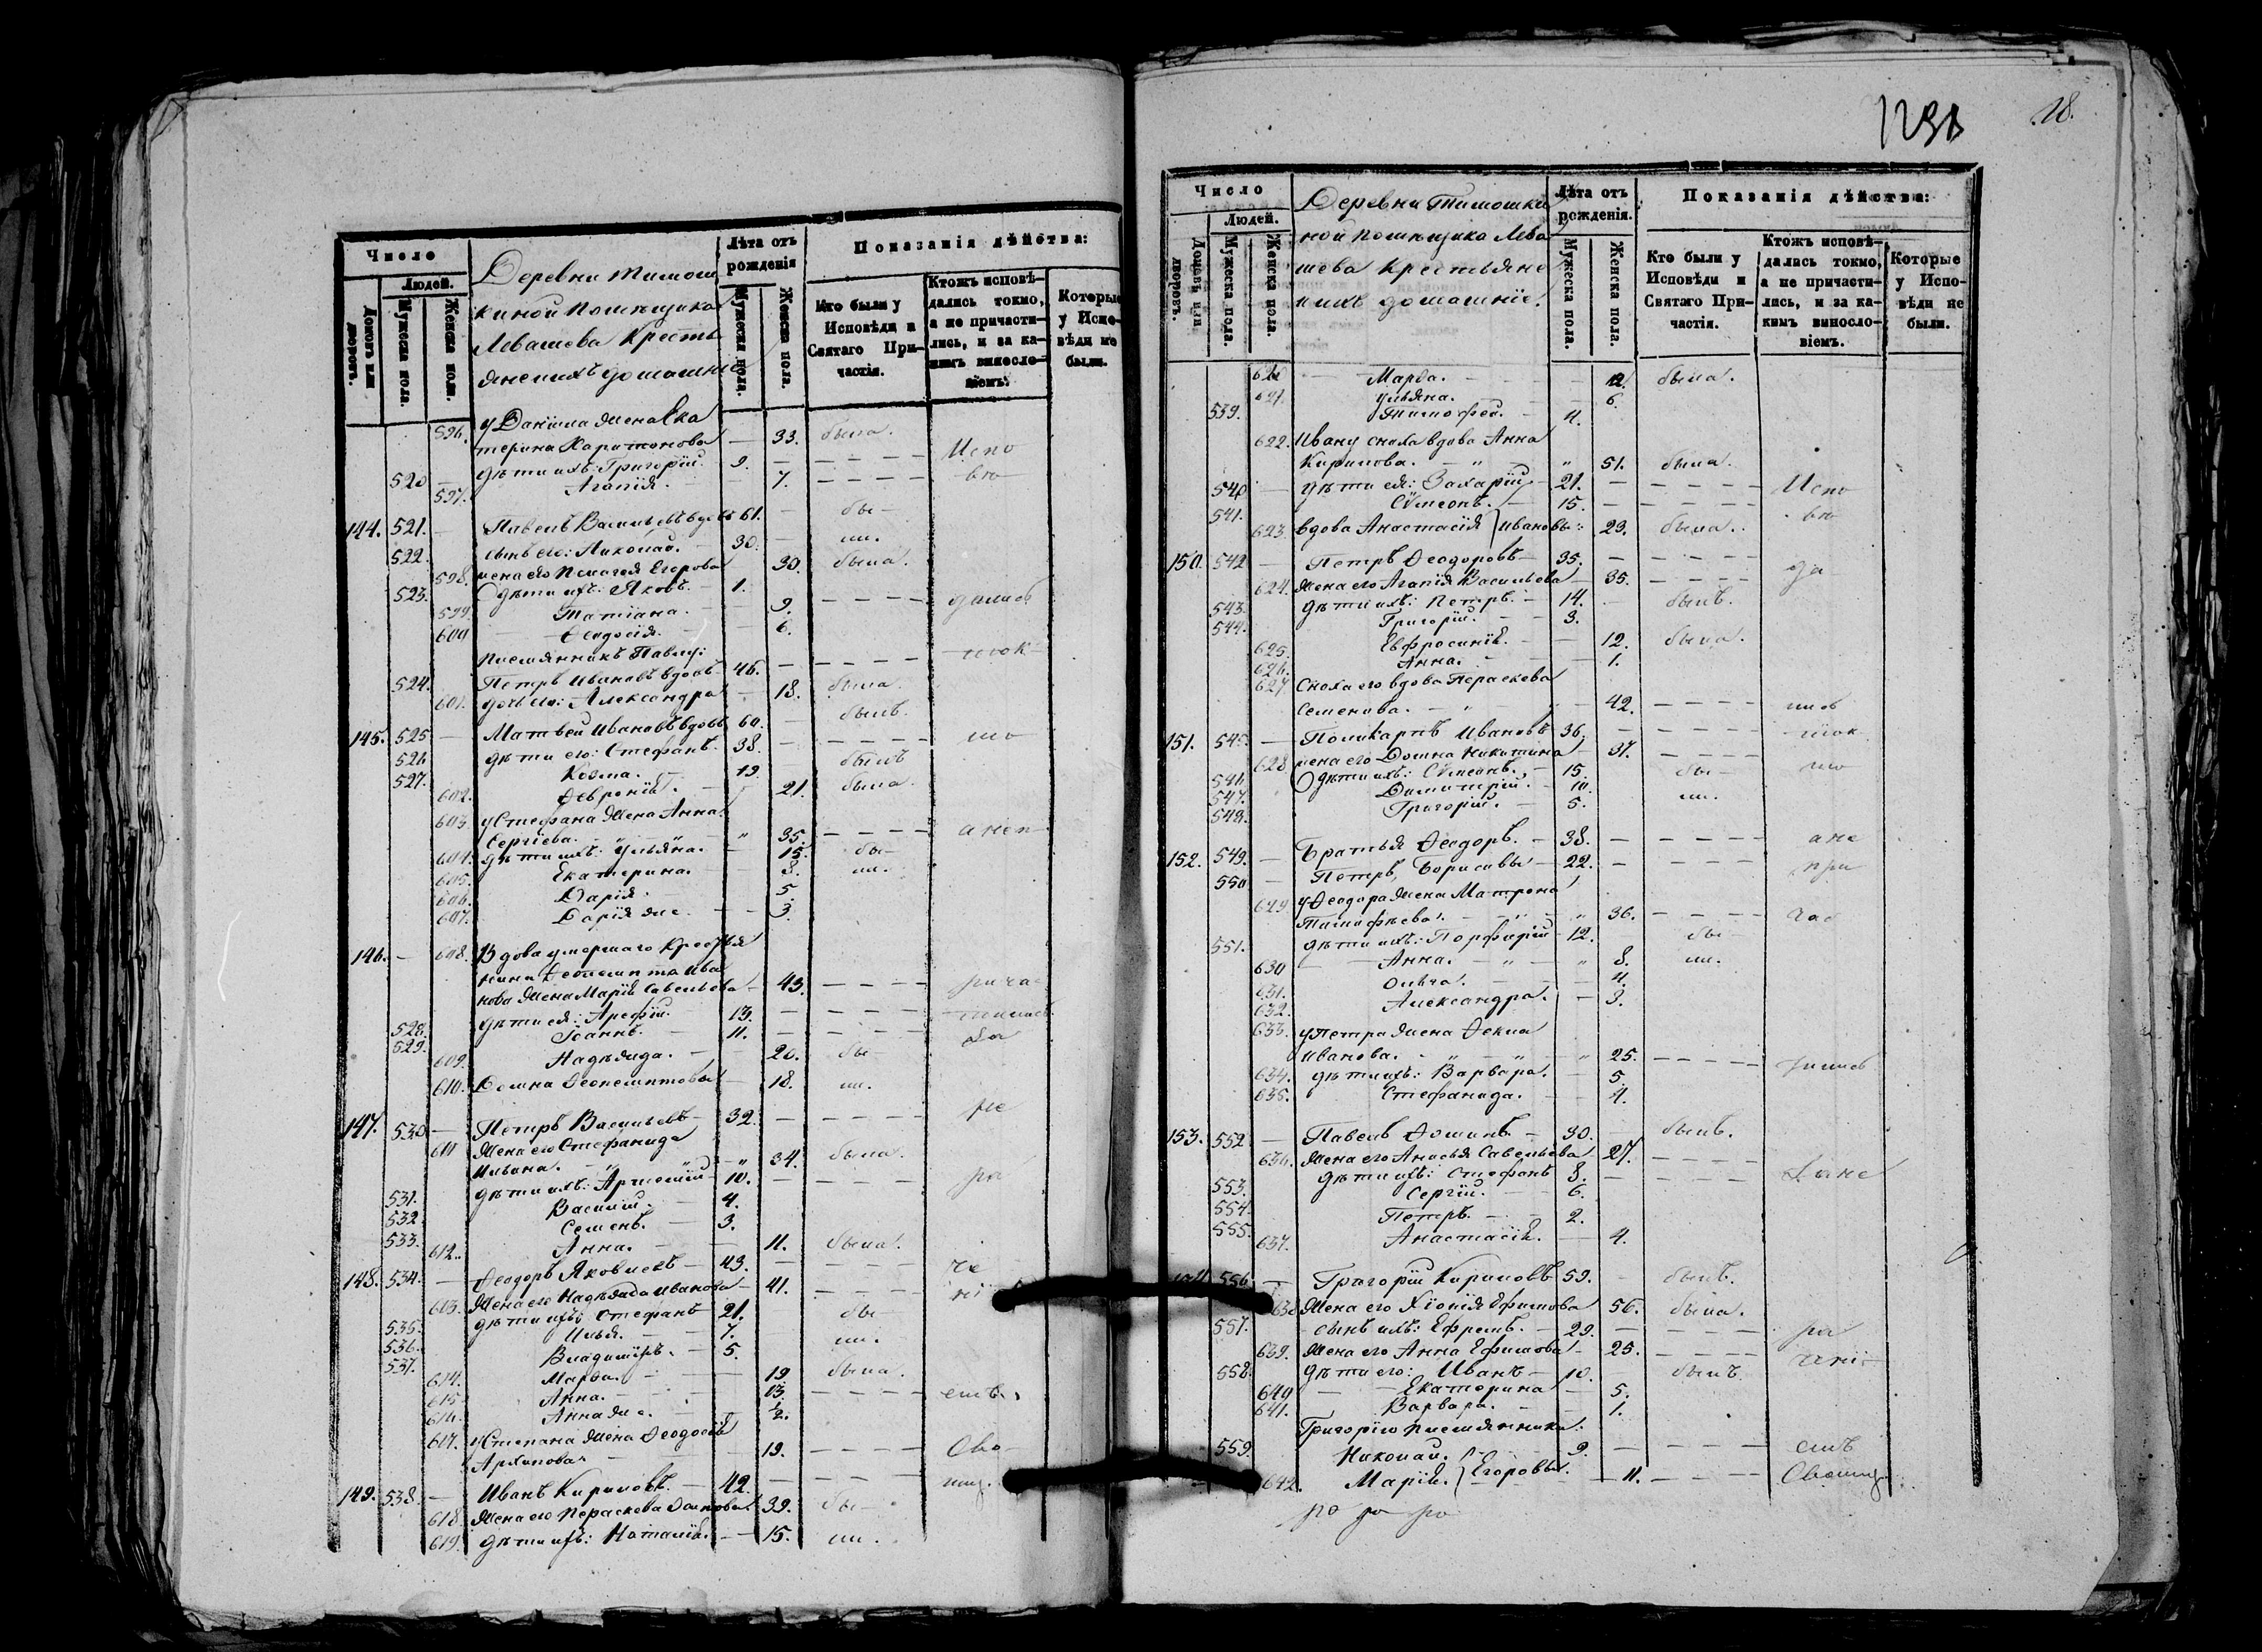 18.
Число
Людей.
Домовъ или дворовъ.
Мужеска пола.
Женска пола.
Деревни Тимош
киной помѣщика
Левашева кресть
яне и ихъ домашніе
Лѣта отъ рожденія
Мужеска пола.
Женска пола.
Показанія дѣйства:
Кто были у Исповѣди и Святаго Причастія.
Ктожъ исповѣдались токмо, а не причастились, и за какимъ винословіемъ.
Которые у Исповѣди не были.
596. у Даніила жена Ека
терина Харитонова — 33. была.
520 дѣти ихъ: Григорій. 9. Испо
597. Агапія. 7. вѣ
144. 521. Павелъ Васильевъ вдовъ 61. бы-
522. сынъ его: Николай. 30. ли.
598. жена его Пелагея Егорова 30. была.
523. дѣти ихъ: Яковъ. 1.
599. Татіана. 9. дались
600 Ѳеодосія. 6.
племянникъ Павлу:
524. Петръ Ивановъ вдовъ 46. токмо
601. дочь его: Александра 18. была.
145. 525 Матвей Ивановъ вдовъ 60. былъ.
526 дѣти его: Стефанъ. 38.
527. Козма. 19. былъ
602. Ѳевронія. 21. была.
603 у Стефана жена Анна
Сергіева. 35. а не п
604. дѣти ихъ: Ульяна. 15. бы-
605. Екатерина. 8. ли.
606. Дарія. 5.
607. Дарія же. 3.
146. — 608. Вдова умершаго крестья
нина Ѳеопемпта Ива
нова жена Марія Савельева 43. рича
528. дѣти ея: Арефій. 13. стились
529. Іоаннъ. 11. за
609. Надежда. 20. бы-
610. Домна Ѳеопемптова 18. ли.
147. 530 Петръ Васильевъ 32.
611 Жена его Стефанида
Ильина. 34. была.
531. дѣти ихъ: Арсеній 10. ра
532. Василій. 4.
533. Семенъ. 3.
612. Анна. 11. была.
148. 534. Ѳеодоръ Яковлевъ 43. че
613. Жена его Надежда Иванова 41. ні
535. дѣти ихъ: Стефанъ 21. бы
536. Илья. 7. ли.
537. Владиміръ. 5.
614. Марѳа. 19 была.
615 Анна. 13. емъ.
616. Анна же. ½.
617. у Степана жена Ѳеодосія
Архипова 19. Свя
149. 538. Иванъ Кириловъ. 42. щ.
618. Жена его Пераскева Фомина 39. бы-
619. дѣти ихъ: Наталія. 15. ли.
Число
Людей.
Домовъ или дворовъ.
Мужеска пола.
Женска пола.
Деревни Тимошки
ной помѣщика Лева
шева крестьяне
и ихъ домашніе.
Лѣта отъ рожденія.
Мужеска пола.
Женска пола.
Показанія дѣйства:
Кто были у Исповѣди и Святаго Причастія.
Ктожъ исповѣдались токмо, а не причастились, и за какимъ винословіемъ.
Которые у Исповѣди не были.
620 Марѳа. 12. была.
621. Ульяна. 6.
539. Тимофей. 4.
622. Ивану сноха вдова Анна
Кирилова. 51. была.
540 дѣти ея: Захарій 21. Испо
541. Сѵмеонъ. 15. вѣ
623. вдова Анастасія Ивановы 23. была.
150. 542 Петръ Ѳеодоровъ 35. да
624. Жена его Агапія Васильева 35.
543. дѣти ихъ: Петръ. 14. былъ.
544. Григорій. 3.
625. Евфросинія. 12. была.
626. Анна. 1.
627. Сноха его вдова Пераскева
Семенова. 42. лись
151. 545. Поликарпъ Ивановъ 36. ток
628 жена его Домна Никитина 37.
546. дѣти ихъ: Сѵмеонъ. 15. бы- мо
547. Димитрій. 10. ли.
548. Григорій. 5.
152. 549. Братья Ѳеодоръ. 38. а не
550 Петръ, Борисовы 22. при
629 у Ѳеодора жена Матрона
Тимофѣева. 36. час
551. дѣти ихъ: Порфирій 12. бы
630 Анна. 8. ли.
631. Ольга. 4.
632. Александра. 3.
633. у Петра жена Ѳекла
Иванова. 25. тились
634. дѣти ихъ: Варвара. 5.
635. Стефанида. 4.
153. 552 Павелъ Ѳоминъ 30. былъ.
636. Жена его Анисья Савельева 27.
553. дѣти ихъ: Стефанъ 8.
554. Сергій. 6.
555. Петръ. 2.
637. Анастасія. 4.
556 Григорій Кириловъ 59. былъ.
638 Жена его Хіонія Ефимова 56. была.
557. сынъ ихъ: Ефремъ. 29. ра
639. Жена его Анна Ефимова 25. чені
558. дѣти его: Иванъ 10. былъ.
640 Екатерина 5.
641. Варвара. 1.
Григорію племянники:
559. Николай. 9. емъ
642. Марія. Егоровы. 11. Священ